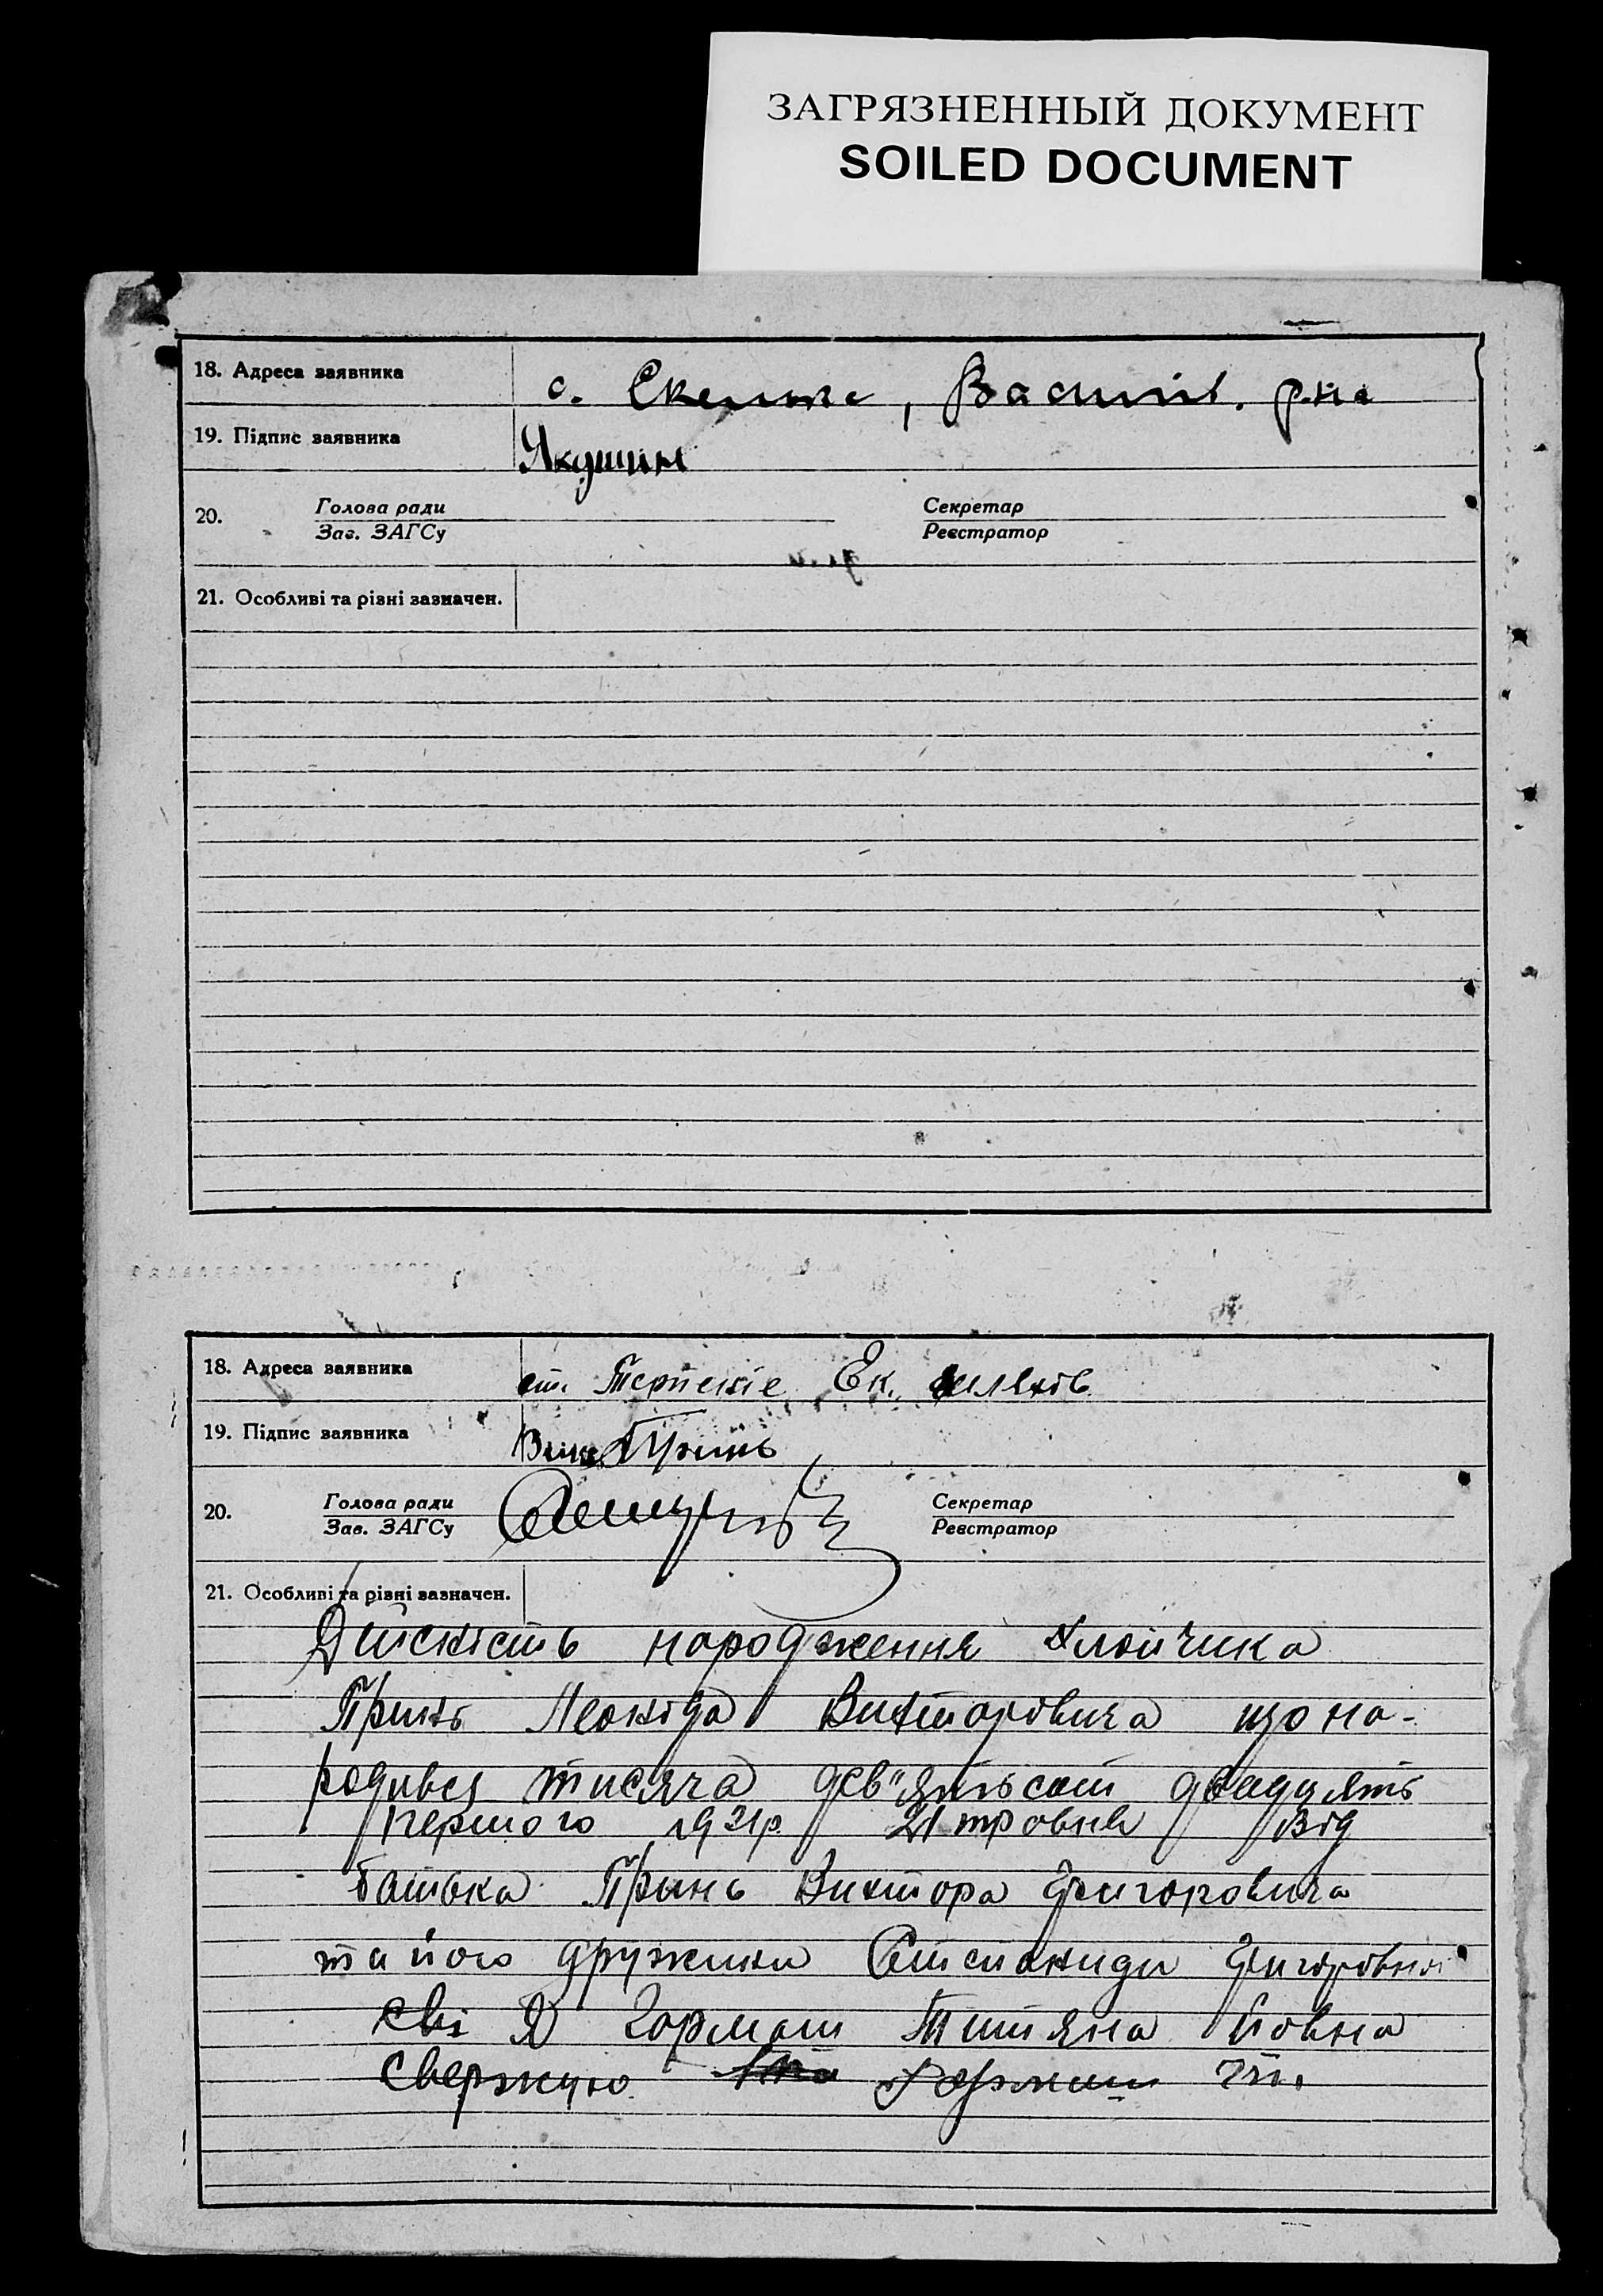 ЗАГРЯЗНЕННЫЙ ДОКУМЕНТ
SOILED DOCUMENT
18. Адреса заявника с. Скельке, Василів. р-на
19. Підпис заявника Якушин
20. Голова ради Секретар
Зав. ЗАГСу Реєстратор
21. Особливі та різні зазначен.
18. Адреса заявника ст. Терпеніе Ек.
19. Підпис заявника Принь
20. Голова ради Секретар
Зав. ЗАГСу Реєстратор
21. Особливі та різні зазначен.
Дійскість народження хлопчика
Принь Леоніда Вихторовича що на-
родився тисяча дев"ятьсот двадцять
першого 1921р. 21 травня від
батька Принь Вихтора Григоровича
та його дружини Степаниди Григорівни
сві Я Гормаш Титяна Йовна
Свержую Гормаш Тт.